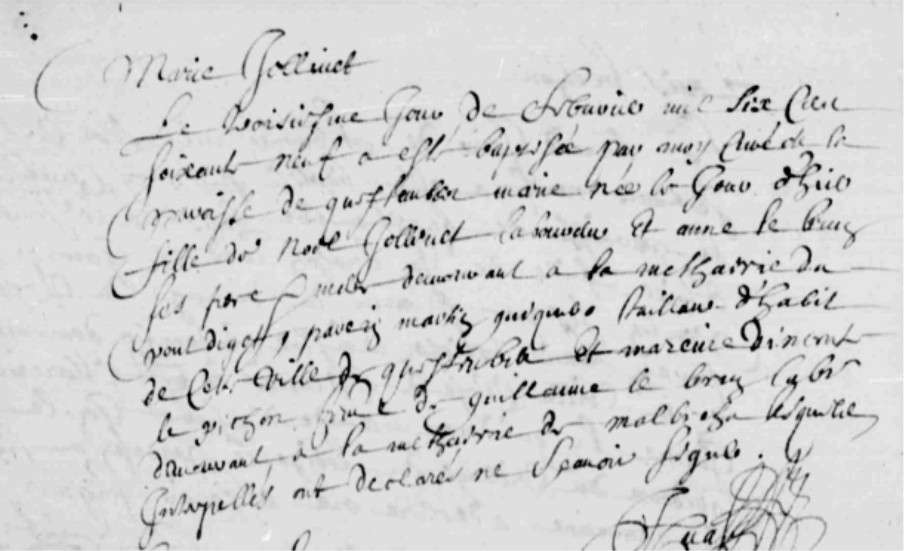 Marie Jollivet
Le troisiesme Jour de Febvrier mil six Cen
soixant neuf a esté baptisée par moy Curé de la
paroisse de questember marie née le Jour d'hier
fille de Noel Jollivet laboureur Et anne le brun
ses pere mere demeurant a la methairie du
pont digest, parein martin taillieur d'habit
de Cette Ville de questembt Et mareine vincente
le pichon feme de guillaume le brun labr
demeurant a la methairie de lesquels
Interpellés ont declarés ne scavoir signer.